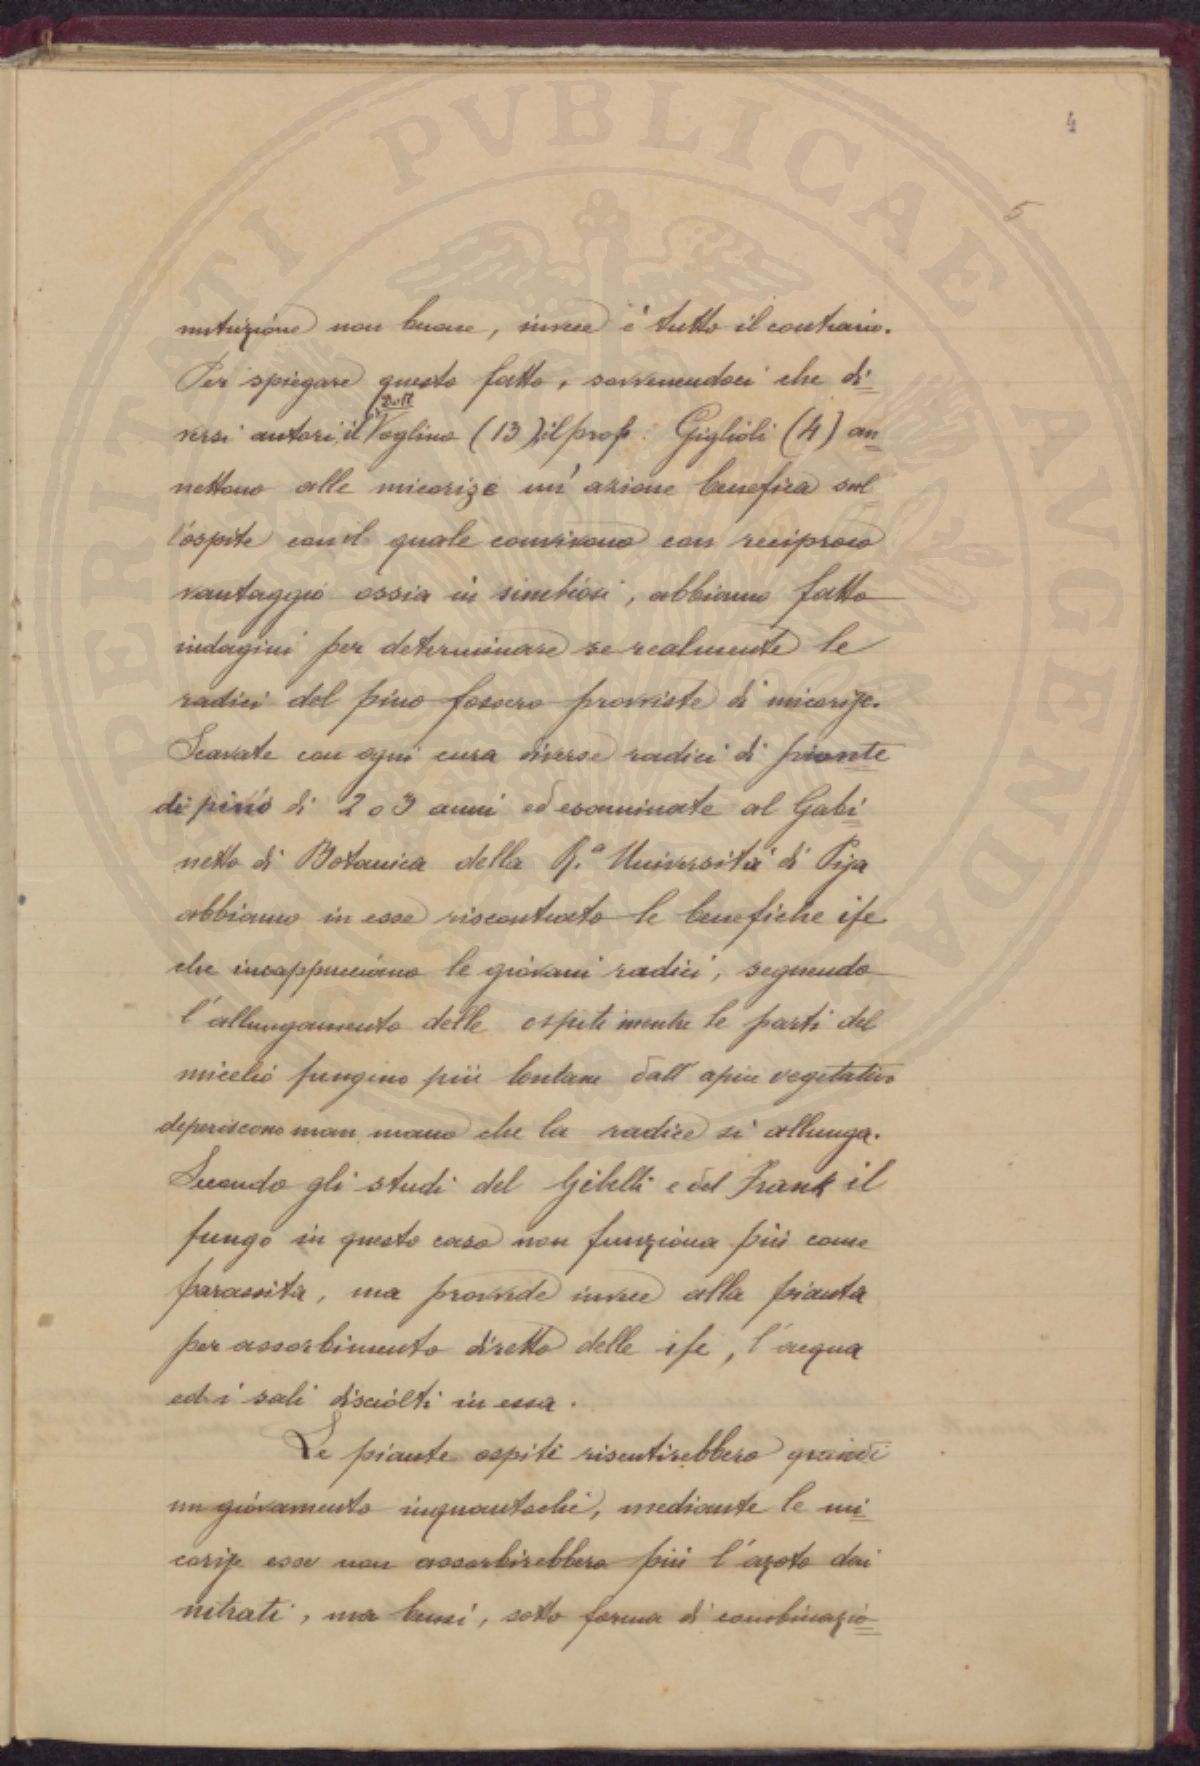 4
5
nutrizione non buone, invece è tutto il contrario.
Per spiegare questo fatto, sovvenendoci che di=
versi autori, il Dott Voglino (13), il prof. Giglioli (4) an=
nettono alle micorize un'azione benefica sul=
l'ospite con il quale convivono con reciproco
vantaggio ossia in simbiosi, abbiamo fatto
indagini per determinare se realmente le
radici del pino fossero provviste di micorize.
Scavate con ogni cura diverse radici di piante
di pino di 2 o 3 anni ed esaminate al Gabi=
netto di Botanica della R.ª Università di Pisa
abbiamo in esse riscontrato le benefiche ife
che incappucciano le giovani radici, seguendo
l'allungamento delle ospiti mentre le parti del
micelio fungino più lontane dall'apice vegetativo
deperiscono man mano che la radice si allunga.
Secondo gli studi del Gibelli e del Frank il
fungo in questo caso non funziona più come
parassita, ma provvede invece alla pianta
per assorbimento diretto delle ife, l'acqua
ed i sali disciolti in essa.
Le piante ospiti risentirebbero quindi
un giovamento inquantochè, mediante le mi=
corize esse non assorbirebbero più l'azoto dai
nitrati, ma bensì, sotto forma di combinazio=
PERITATI PVBLICAE AVGENDA